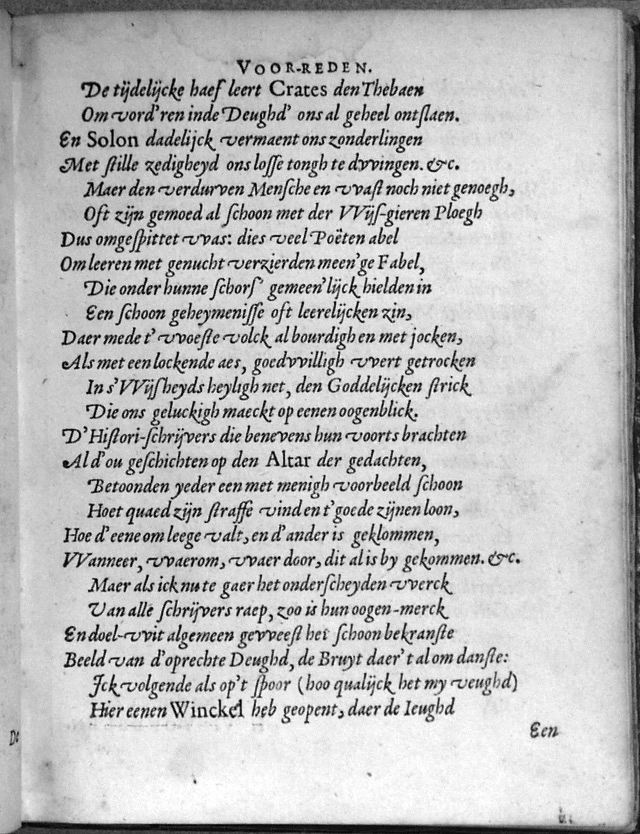 VOOR-REDEN.
De tijdelijcke haef leert Crates den Thebaen
Om vord'ren inde Deughd' ons al geheel ontslaen.
En Solon dadelijck vermaent ons zonderlingen
Met stille zedigheyd ons losse tongh te dvvingen. &c.
Maer den verdurven Mensche en vvast noch niet genoegh,
Oft zijn gemoed al schoon met der VVijs-gieren Ploegh
Dus omgespittet vvas: dies veel Poëten abel
Om leeren met genucht verzierden meen'ge Fabel,
Die onder hunne schors' gemeen'lijck hielden in
Een schoon geheymenisse oft leerelijcken zin,
Daer mede t'vvoeste volck al bourdigh en met jocken,
Als met een lockende aes, goedvvilligh vvert getrocken
In s'VVijsheyds heyligh net, den Goddelijcken strick
Die ons geluckigh maeckt op eenen oogenblick.
D'Histori-schrijvers die benevens hun voorts brachten
Al d'ou geschichten op den Altar der gedachten,
Betoonden yeder een met menigh voorbeeld schoon
Hoet quaed zijn straffe vind en t'goede zijnen loon,
Hoe d'eene om leege valt, en d'ander is geklommen,
VVanneer, vvaerom, vvaer door, dit al is by gekommen. &c.
Maer als ick nu te gaer het onderscheyden vverck
Van alle schrijvers raep, zoo is hun oogen-merck
En doel-vvit algemeen gevveest het schoon bekranste
Beeld van d'oprechte Deughd, de Bruyt daer't al om danste:
Ick volgende als op't spoor (hoo qualijck het my veughd)
Hier eenen Winckel heb geopent, daer de Ieughd
Een
De